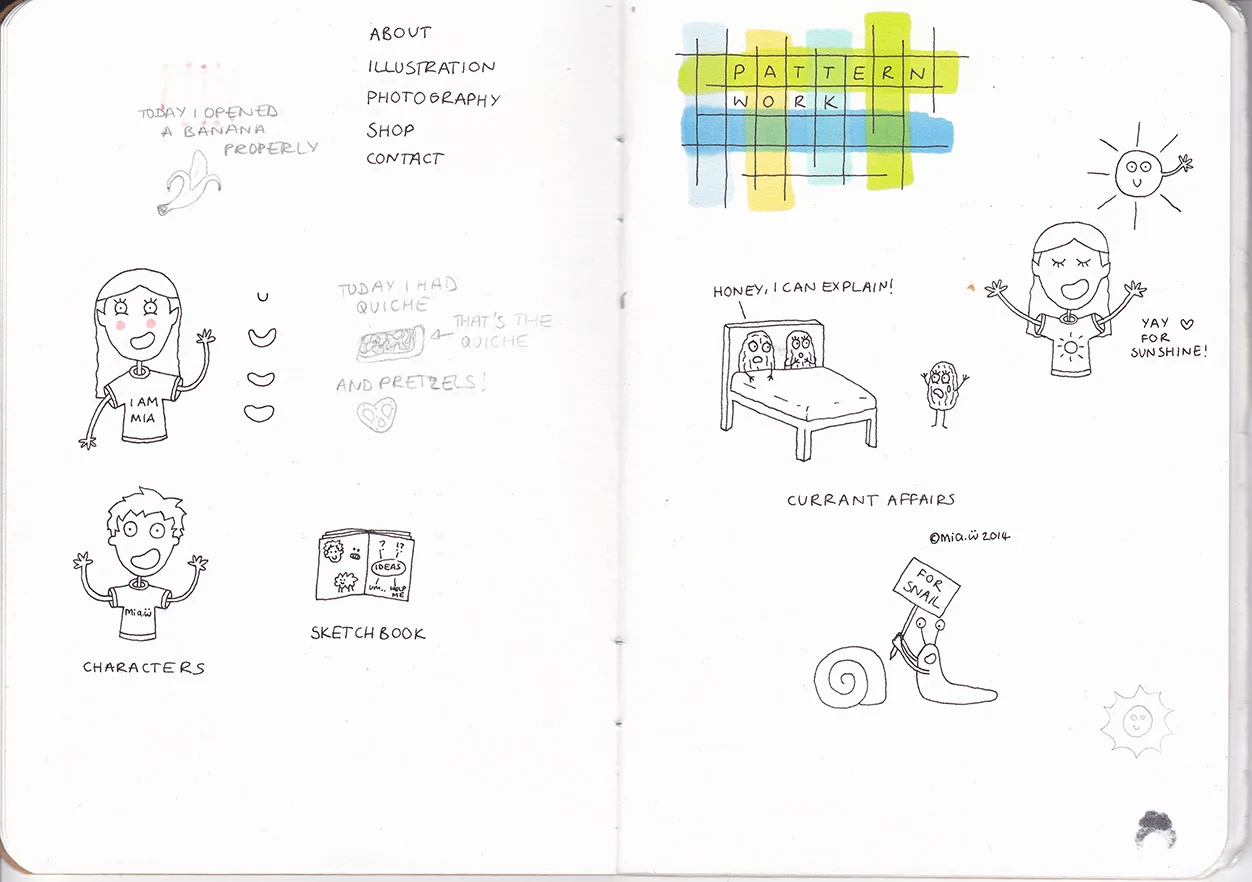 ABOUT
ILLUSTRATION
PHOTOGRAPHY
SHOP
CONTACT
TODAY I OPENED
A BANANA
PROPERLY
I AM
MIA
TODAY I HAD
QUICHE
THAT'S THE
QUICHE
AND PRETZELS!
Mia.ü
CHARACTERS
? !?
IDEAS
UM..
HELP
ME
SKETCHBOOK
PATTERN
WORK
HONEY, I CAN EXPLAIN!
YAY ♡
FOR
SUNSHINE!
CURRANT AFFAIRS
©Mia.ü 2014
FOR
SNAIL